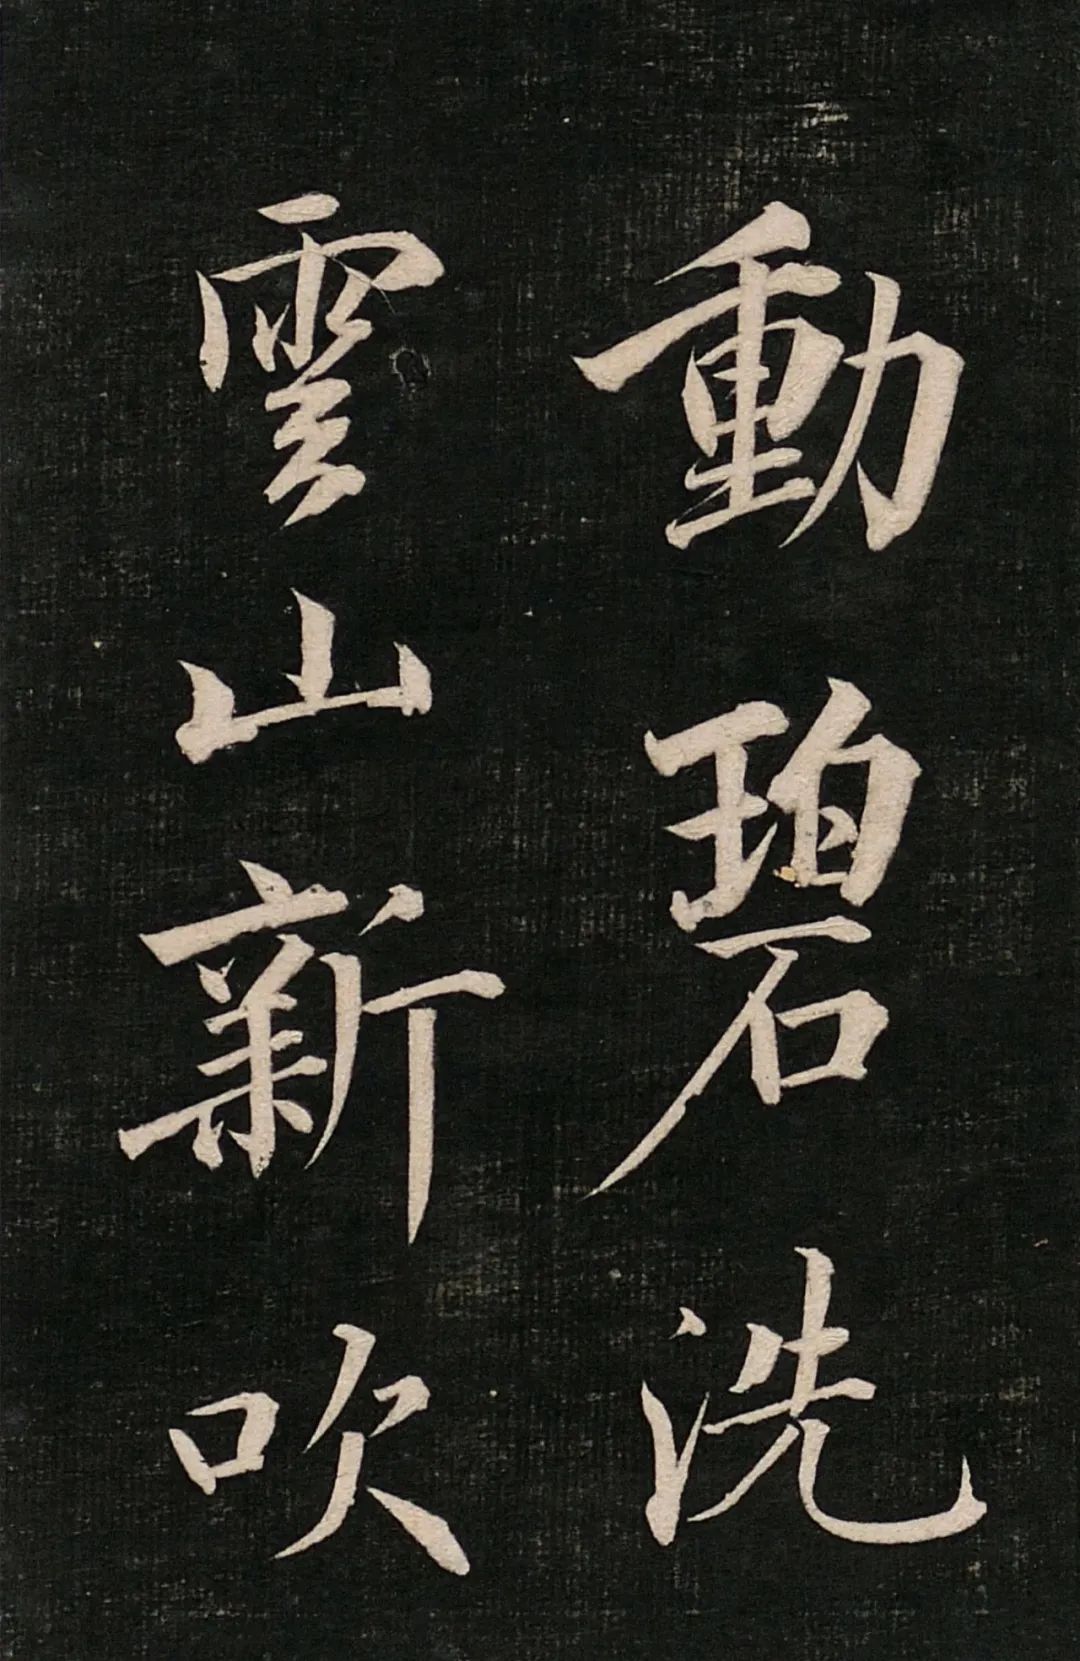 動碧洗
雲山新吹